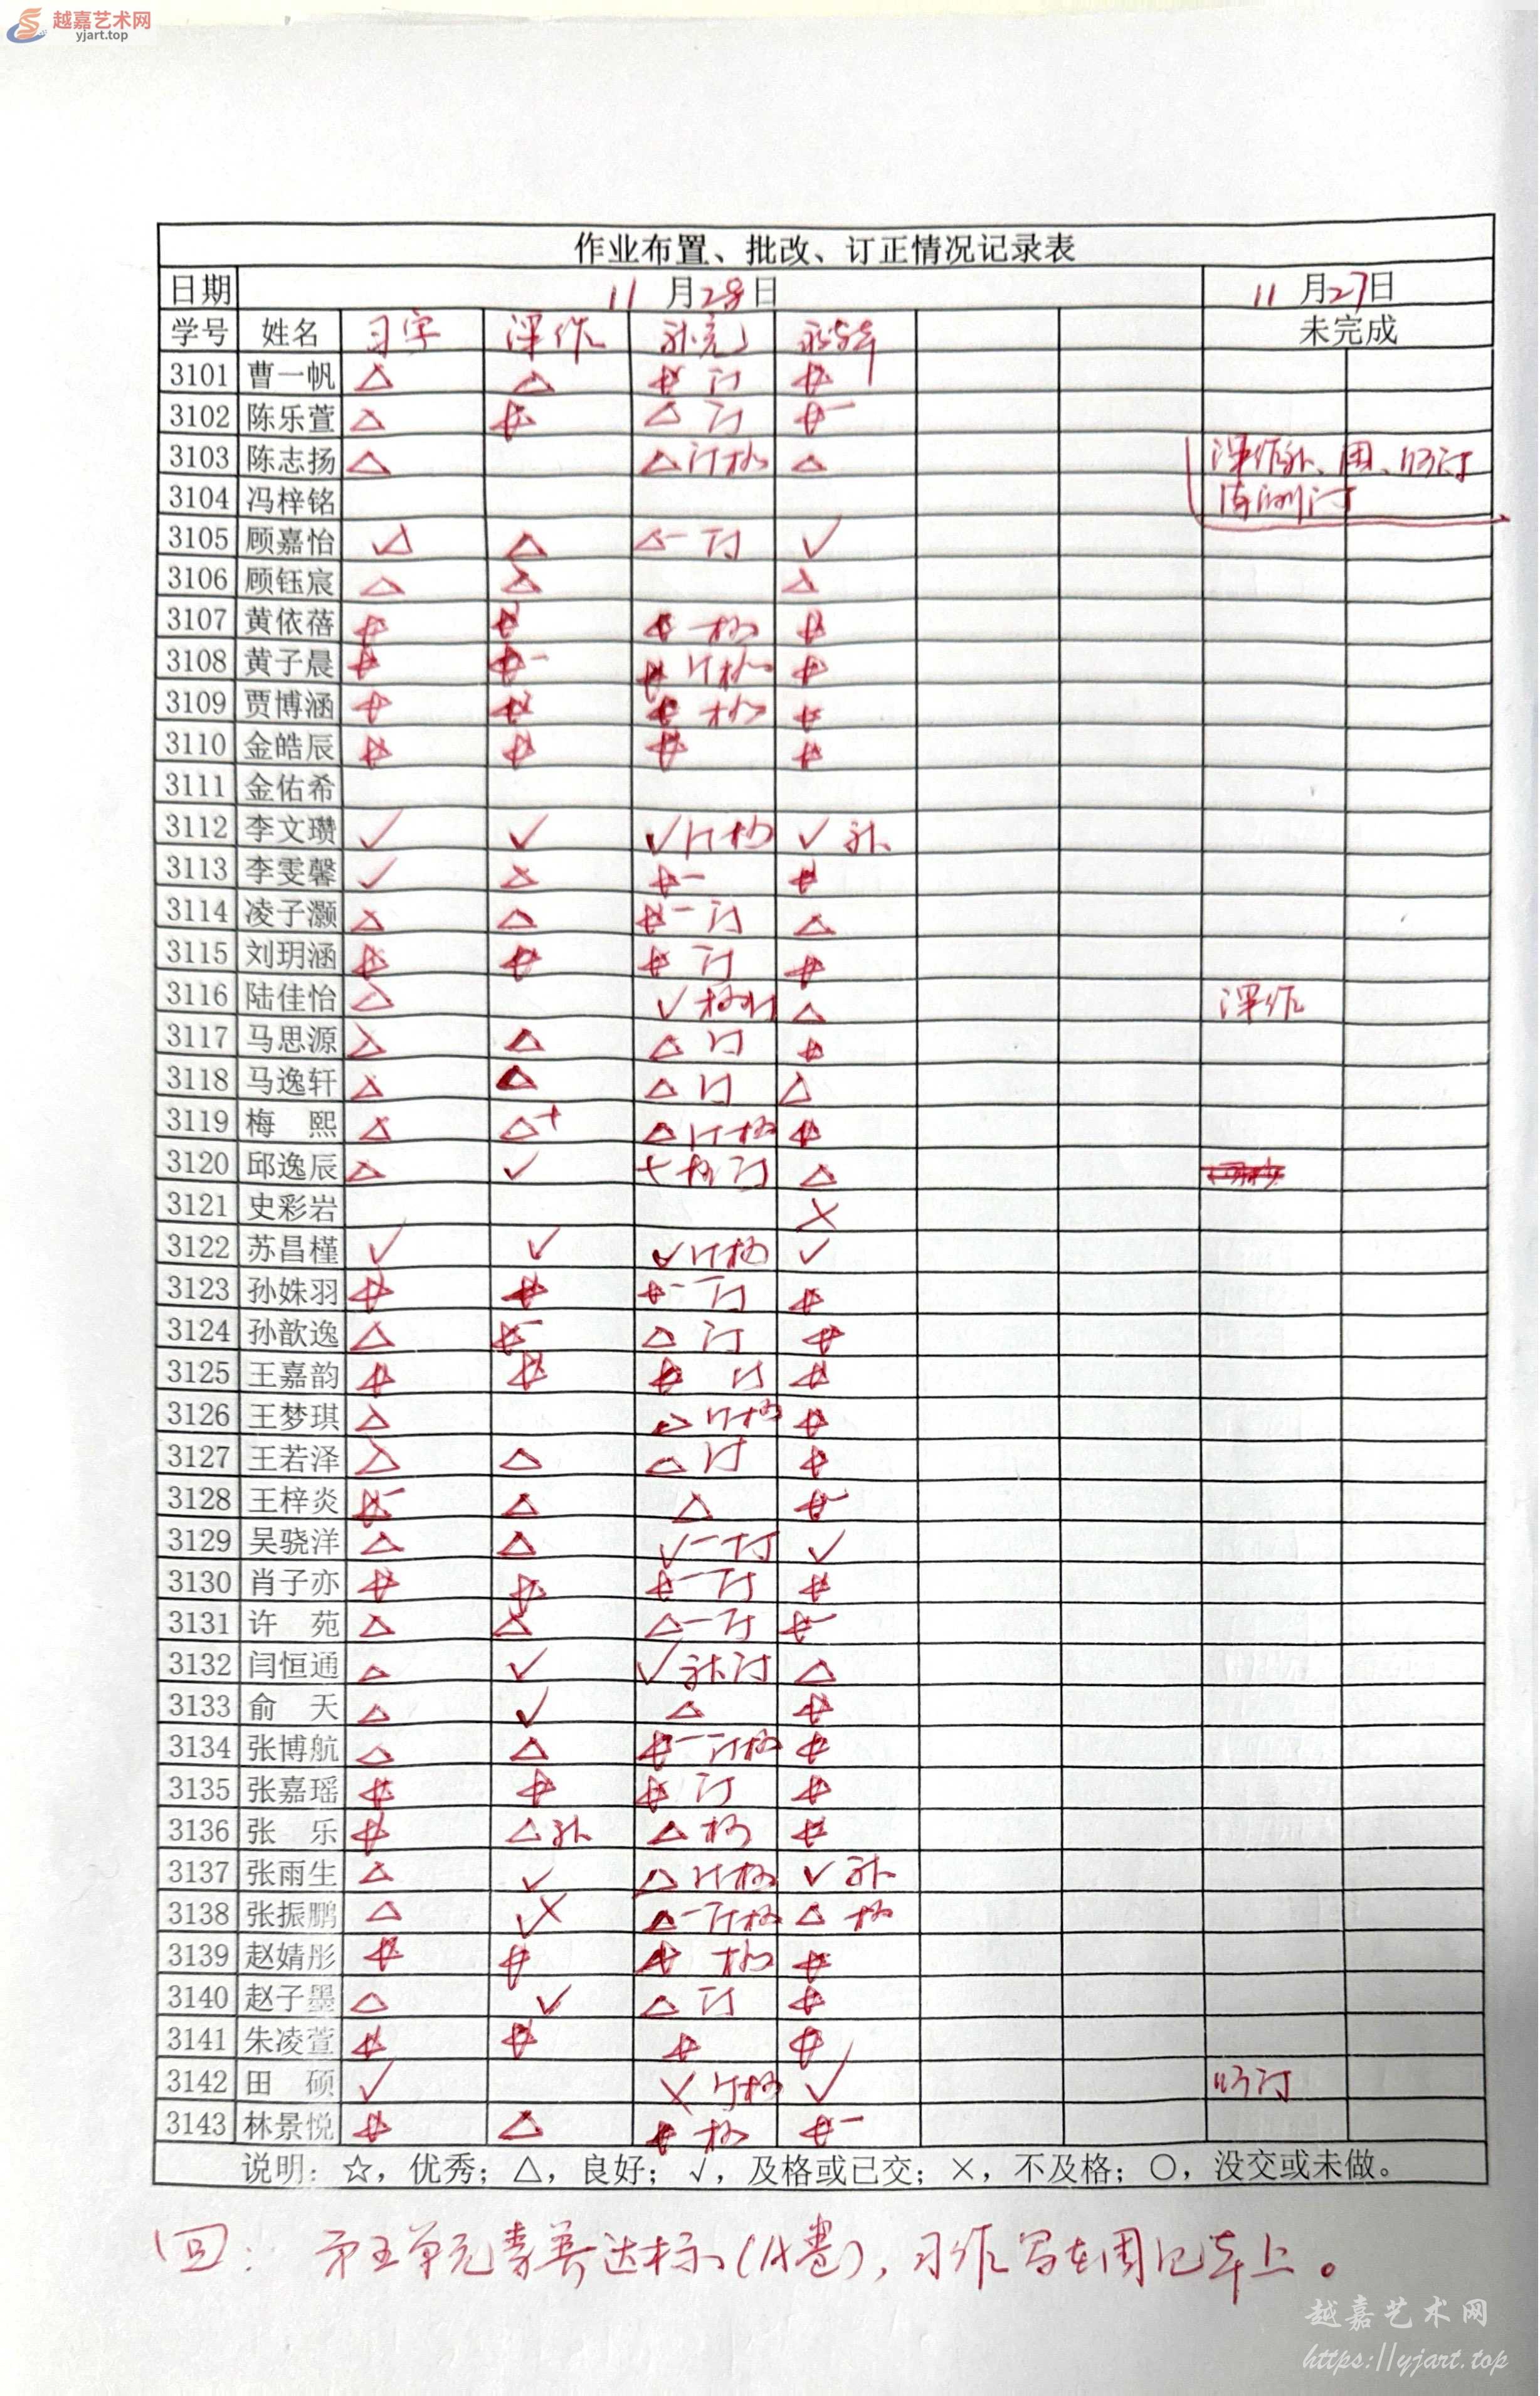 越嘉艺术网
yjart.top
作业布置、批改、订正情况记录表
日期 11月28日 11月27日
学号 姓名 习字 课作 补充 未完成
3101 曹一帆 △ △ ☆ 订 ☆
3102 陈乐萱 △ ☆ △ 订 ☆-
3103 陈志扬 △ △ 订 △
3104 冯梓铭
3105 顾嘉怡 △ △- 订 √
3106 顾钰宸 △ △ △
3107 黄依蓓 ☆ ☆ ☆ ☆
3108 黄子晨 ☆ ☆- ☆ 订 ☆
3109 贾博涵 ☆ ☆ ☆ ☆
3110 金皓辰 ☆ ☆ ☆ ☆
3111 金佑希
3112 李文瓒 √ √ √ 订 √ 补
3113 李雯馨 √ △ ☆- ☆
3114 凌子灏 △ △ ☆- 订 △
3115 刘玥涵 ☆ ☆ ☆ 订 ☆
3116 陆佳怡 △ √ 订 △ 课作
3117 马思源 △ △ △ 订 ☆
3118 马逸轩 △ △ △ 订 △
3119 梅 熙 △ △+ △ 订 ☆
3120 邱逸辰 △ √ 订 △
3121 史彩岩 ×
3122 苏昌槿 √ √ √ 订 √
3123 孙姝羽 ☆ ☆ ☆- 订 ☆
3124 孙歆逸 △ ☆- △ 订 ☆
3125 王嘉韵 ☆ ☆ ☆ 订 ☆
3126 王梦琪 △ △ 订 ☆
3127 王若泽 △ △ △ 订 ☆
3128 王梓炎 ☆- △ △ ☆-
3129 吴骁洋 △ △ √- 订 √
3130 肖子亦 ☆ ☆ ☆- 订 ☆
3131 许 苑 △ △ △- 订 ☆-
3132 闫恒通 △ √ √ 补订 △
3133 俞 天 △ √ △ ☆
3134 张博航 △ △ ☆- 订 ☆
3135 张嘉瑶 ☆ ☆ ☆ 订 ☆
3136 张 乐 ☆ △ 补 △ ☆
3137 张雨生 △ √ △ 订 √ 补
3138 张振鹏 △ △- 订 △
3139 赵婧彤 ☆ ☆ ☆ ☆
3140 赵子墨 △ √ △ 订 ☆
3141 朱凌萱 ☆ ☆ ☆ ☆
3142 田 硕 √ × 订 √ 订
3143 林景悦 ☆ △ ☆ ☆-
说明：☆，优秀；△，良好；√，及格或已交；×，不及格；○，没交或未做。
回：第五单元素养达标(A卷)，习作写在周记本上。
越嘉艺术网
https://yjart.top